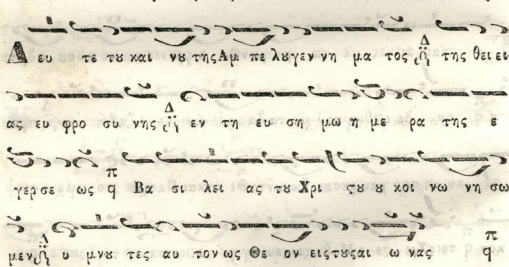 Δευ τε τȣ και νȣ της Αμ πε λȣ γεν νη μα τος Δ της θει ει
ας ευ φρο συ νης Δ εν τη ευ ση μω η με ρα της ε
γερ σε ως π q Βα σι λει ας τȣ Χρι ϛȣ ȣ κοι νω νη σω
μεν υ μνȣ τες αυ τον ως Θε ον εις τȣς αι ω νας π q